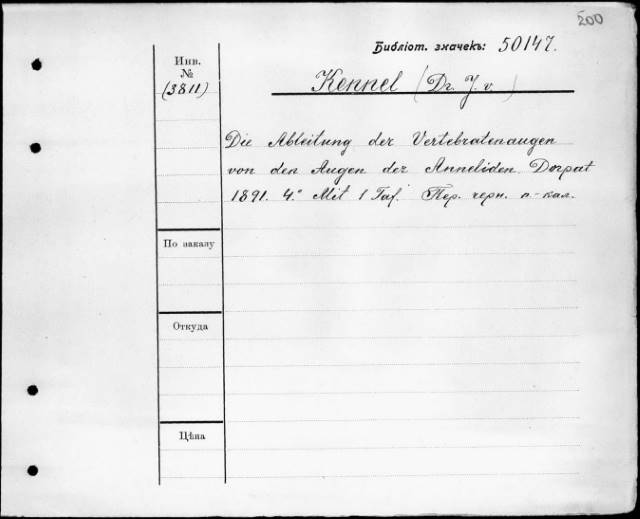 200
Библіот. значекъ: 50147.
Инв.
№
(3811)
Kennel (Dr. J. v. )
Die Ableitung der Vertebratenaugen
von den Augen der Anneliden. Dorpat
1891. 4.° Mit 1 Taf. Пер. черн. п-кал.
По заказу
Откуда
Цѣна